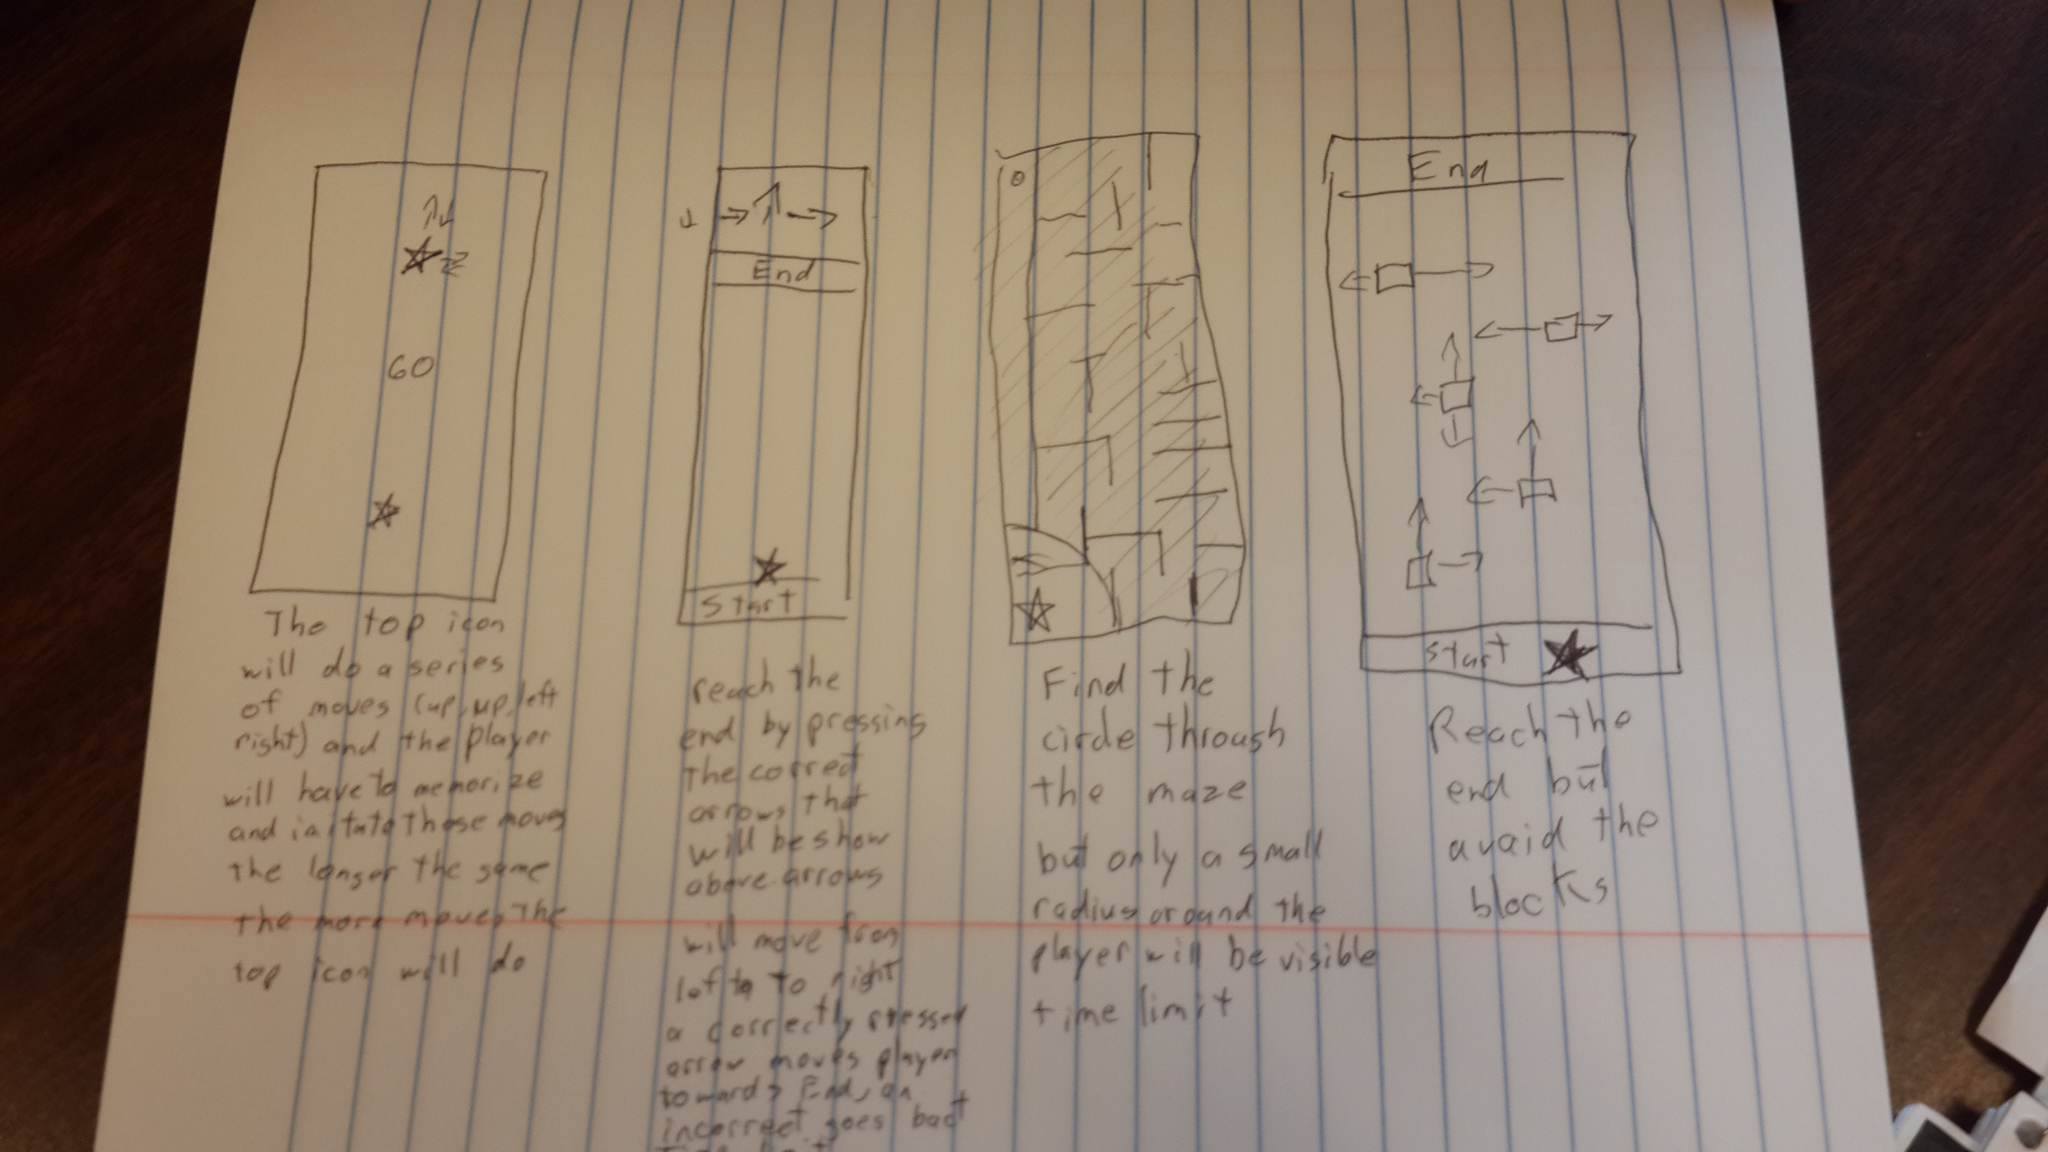 60
The top icon
will do a series
of moves (up, up, left
right) and the player
will have to memorize
and imitate those moves
the longer the same
the more moves the
top icon will do
End
Start
reach the
end by pressing
the correct
arrows that
will be show
above. arrows
will move from
left to right
a correctly pressed
arrow moves player
towards End, an
incorrect goes back
Find the
circle through
the maze
but only a small
radius around the
player will be visible
time limit
End
start
Reach the
end but
avaid the
blocks